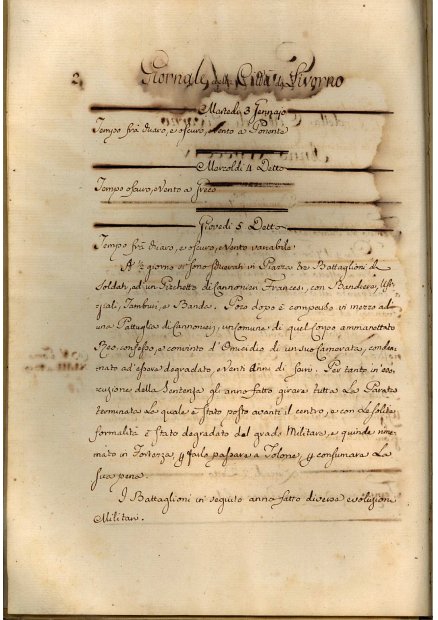 2. Giornale della Città di Livorno
Martedì 3 Gennajo
Tempo frà chiaro, e oscuro, e vento a Ponente
Mercoldì 4 Detto
Tempo oscuro, e vento a Greco
Giovedì 5 Detto
Tempo frà chiaro, e oscuro, e vento variabile
A ½ giorno si sono schierati in Piazza tre Battaglioni di
Soldati, ed un Picchetto di Cannonieri Francesi, con Bandiere, Uffi-
ziali, Tamburi, e Banda. Poco dopo è comparso in mezzo ad
una Pattuglia di Cannonieri, un Comune di quel Corpo ammanettato
Reo confesso, e convinto d'Omicidio di un suo Camerata, condan-
nato ad essere degradato, e venti Anni di ferri. Per tanto in ese-
cuzione della Sentenza gli anno fatto girare tutta La Parata
terminata La quale è stato posto avanti il centro, e con Le solite
formalità è stato degradato del grado Militare, e quindi rime-
nato in Fortezza, p farlo passare a Tolone, p consumare La
sua pena.
I Battaglioni in seguito anno fatto diverse evoluzioni
Militari.